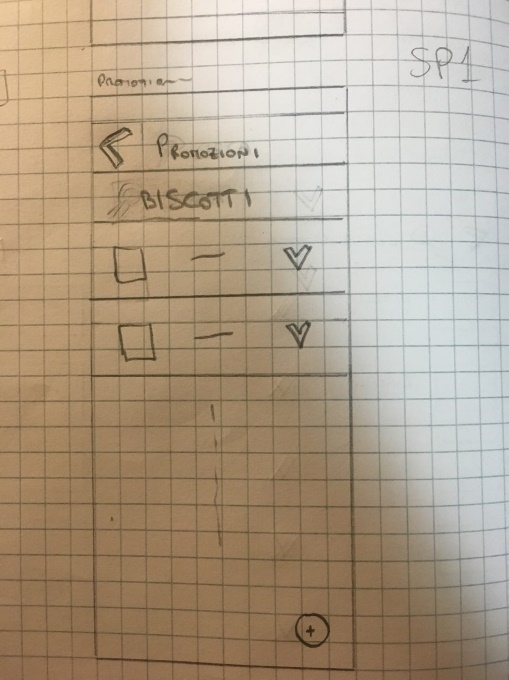 SP1
Promozioni
PROMOZIONI
BISCOTTI
+